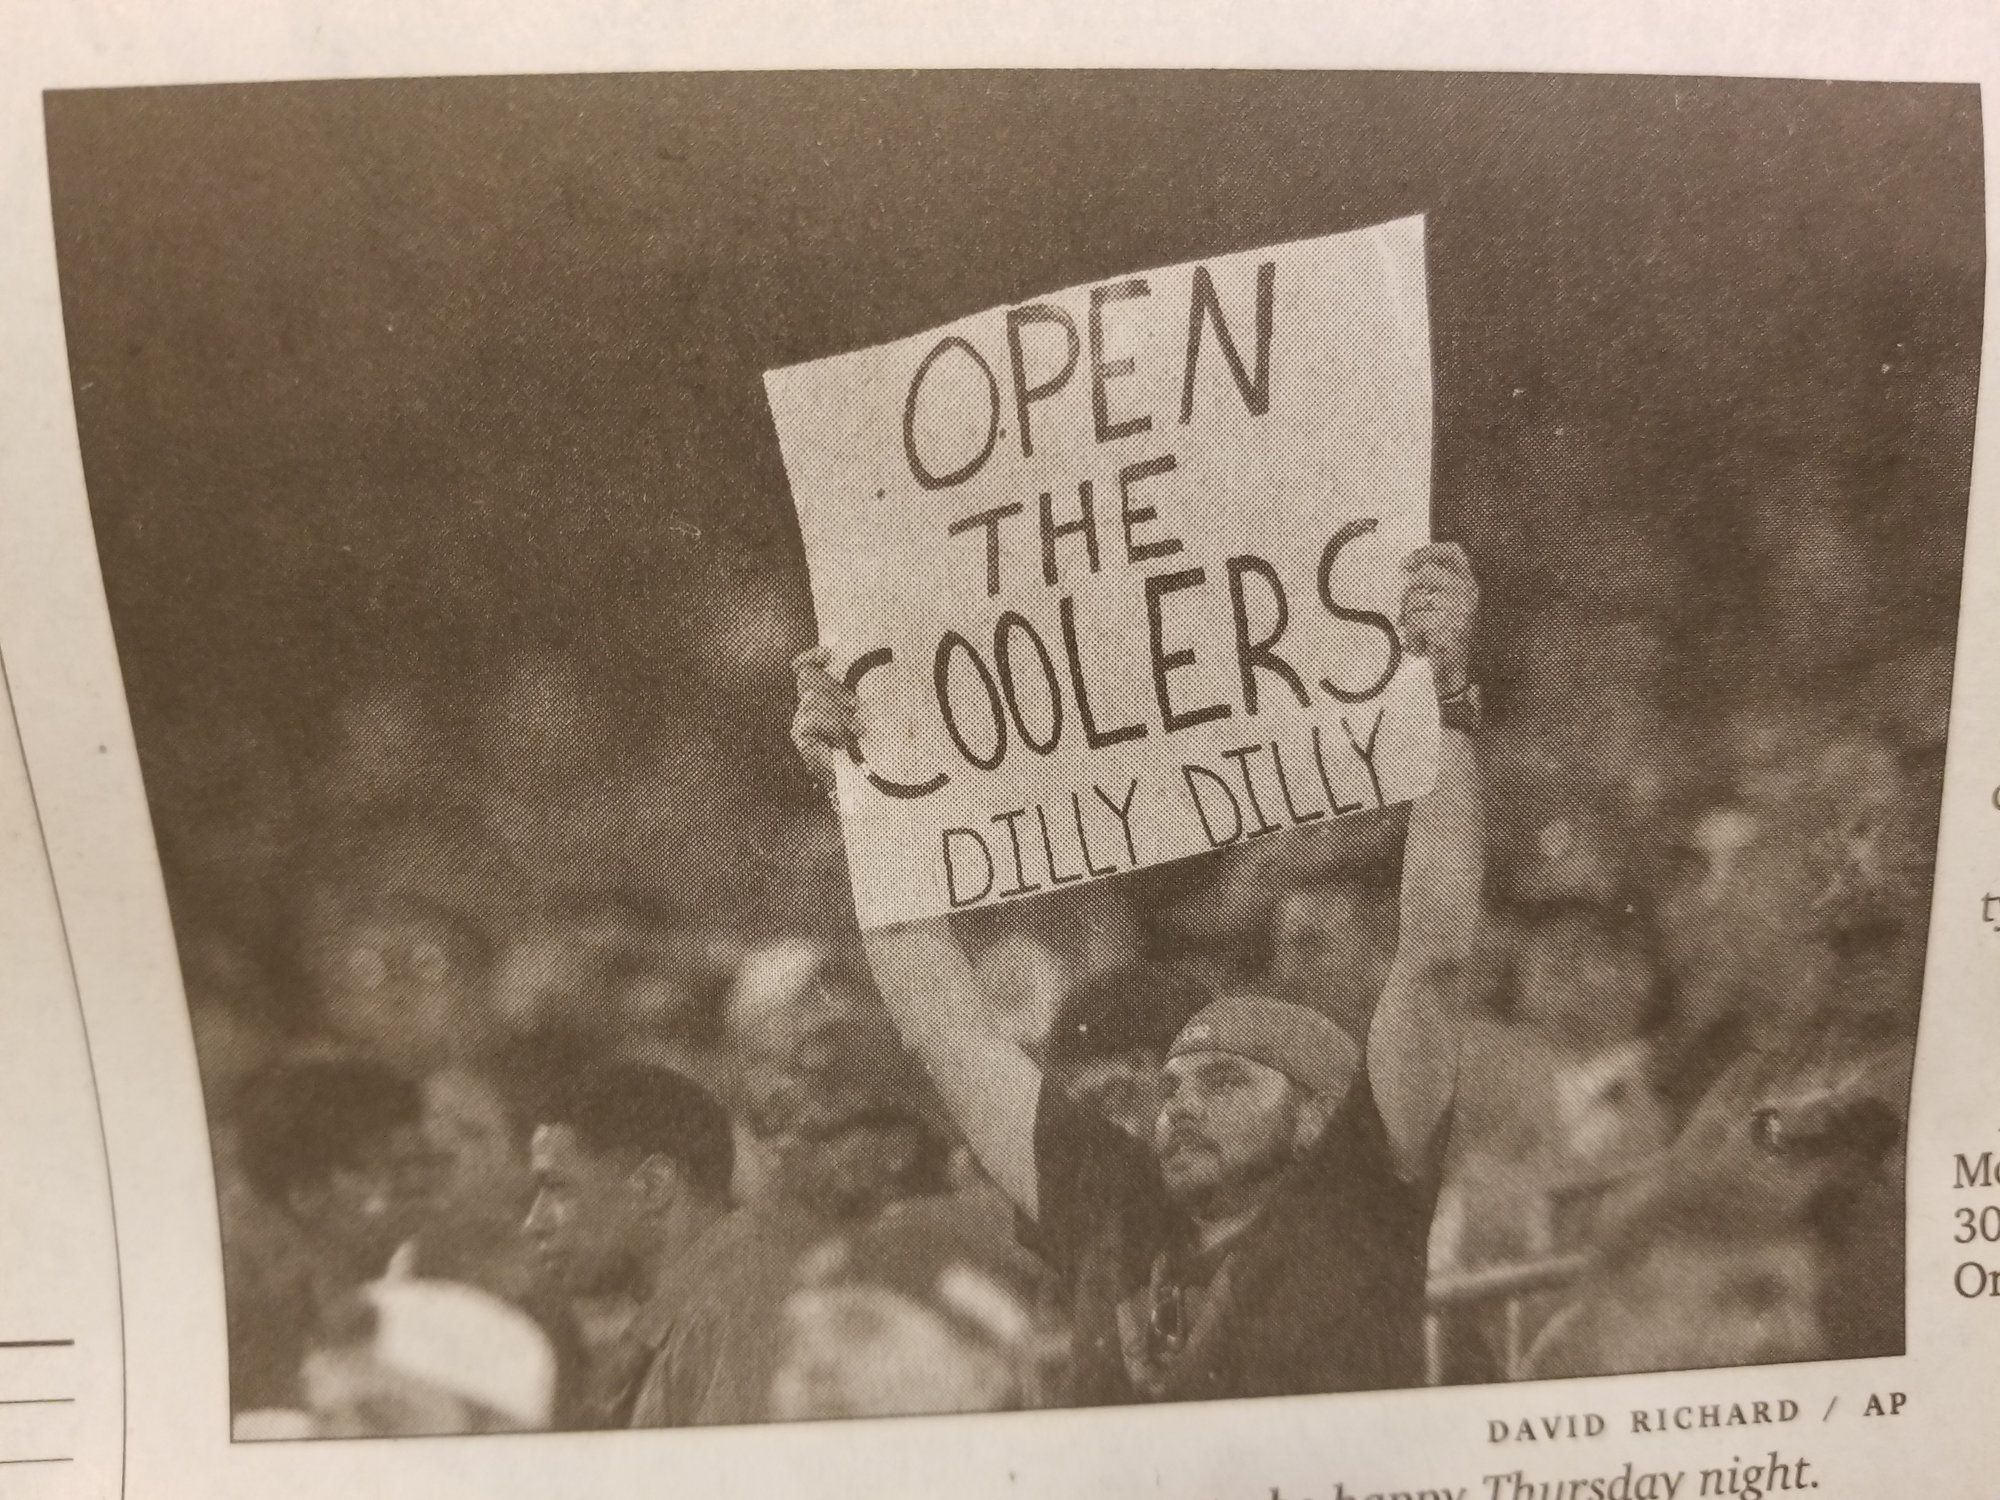 OPEN
THE
COOLERS
DILLY DILLY
DAVID RICHARD / AP
happy Thursday night.
Mo
30
On